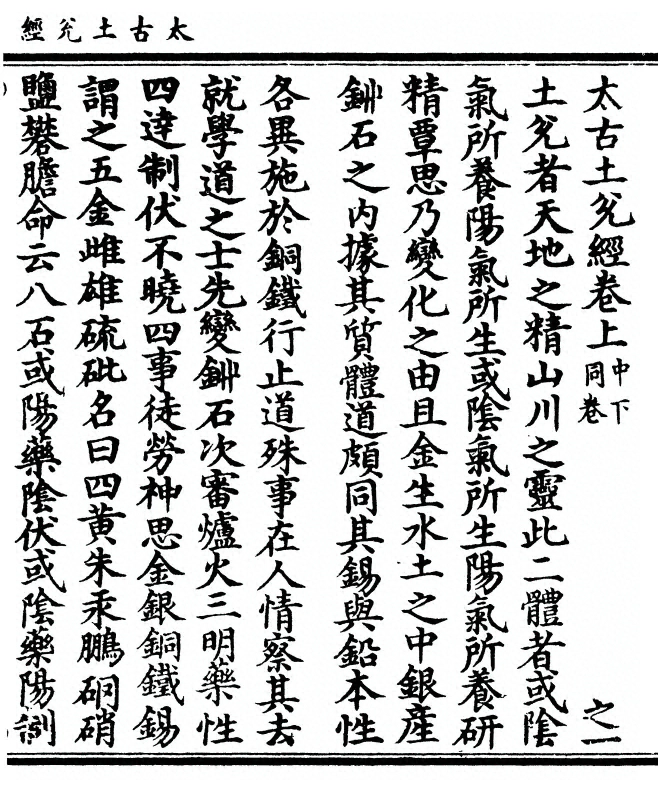 太古土兊經
太古土兊經卷上 中下同卷 之一
土兊者天地之精山川之靈此二體者或陰
氣所養陽氣所生或陰氣所生陽氣所養研
精覃思乃變化之由且金生水土之中銀產
𨥥石之內據其質體道頗同其錫與鉛本性
各異施於銅鐵行止道殊事在人情察其去
就學道之士先變𨥥石次審爐火三明藥性
四達制伏不曉四事徒勞神思金銀銅鐵錫
謂之五金雌雄硫砒名曰四黃朱汞鵬硐硝
鹽礬膽命云八石或陽藥陰伏或陰藥陽制